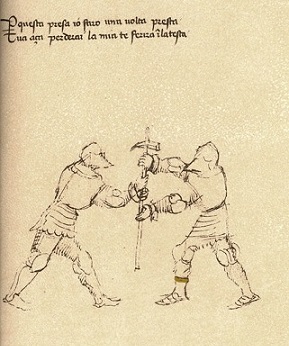 P questa presa io faro una volta presta
Tua aça perderai la mia te ferira i la testa